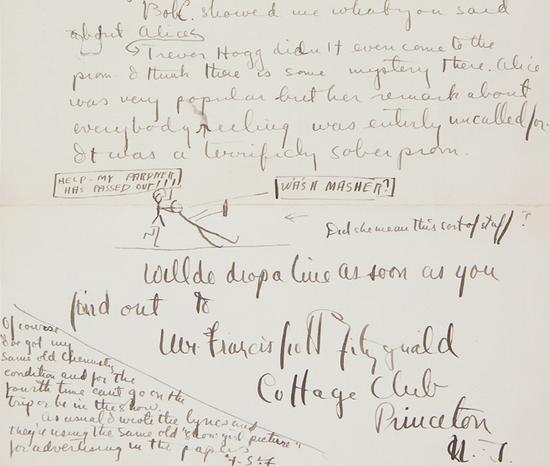 BobC. showed me what you said
about Alice
Trevor Hogg didn't even come to the
prom. I think there is some mystery there. Alice
was very popular but her remark about
everybody reeling was enterly uncalled for.
It was a terrificly sober prom.
HELP-MY PARDNER
HAS PASSED OUT!!!
WAS A MASHER?
Did she mean this sort of stuff?
Well do drop a line as soon as you
find out to
Mr Francis Scott Fitzgerald
Cottage Club
Princeton
N. J.
Of course
I've got my
same old Chemistry
condition and for the
fourth time can't go on the
trip or be in the show.
As usual I wrote the lyrics and
they're using the same old "show girl picture"
for advertising in the papers
F.S.F